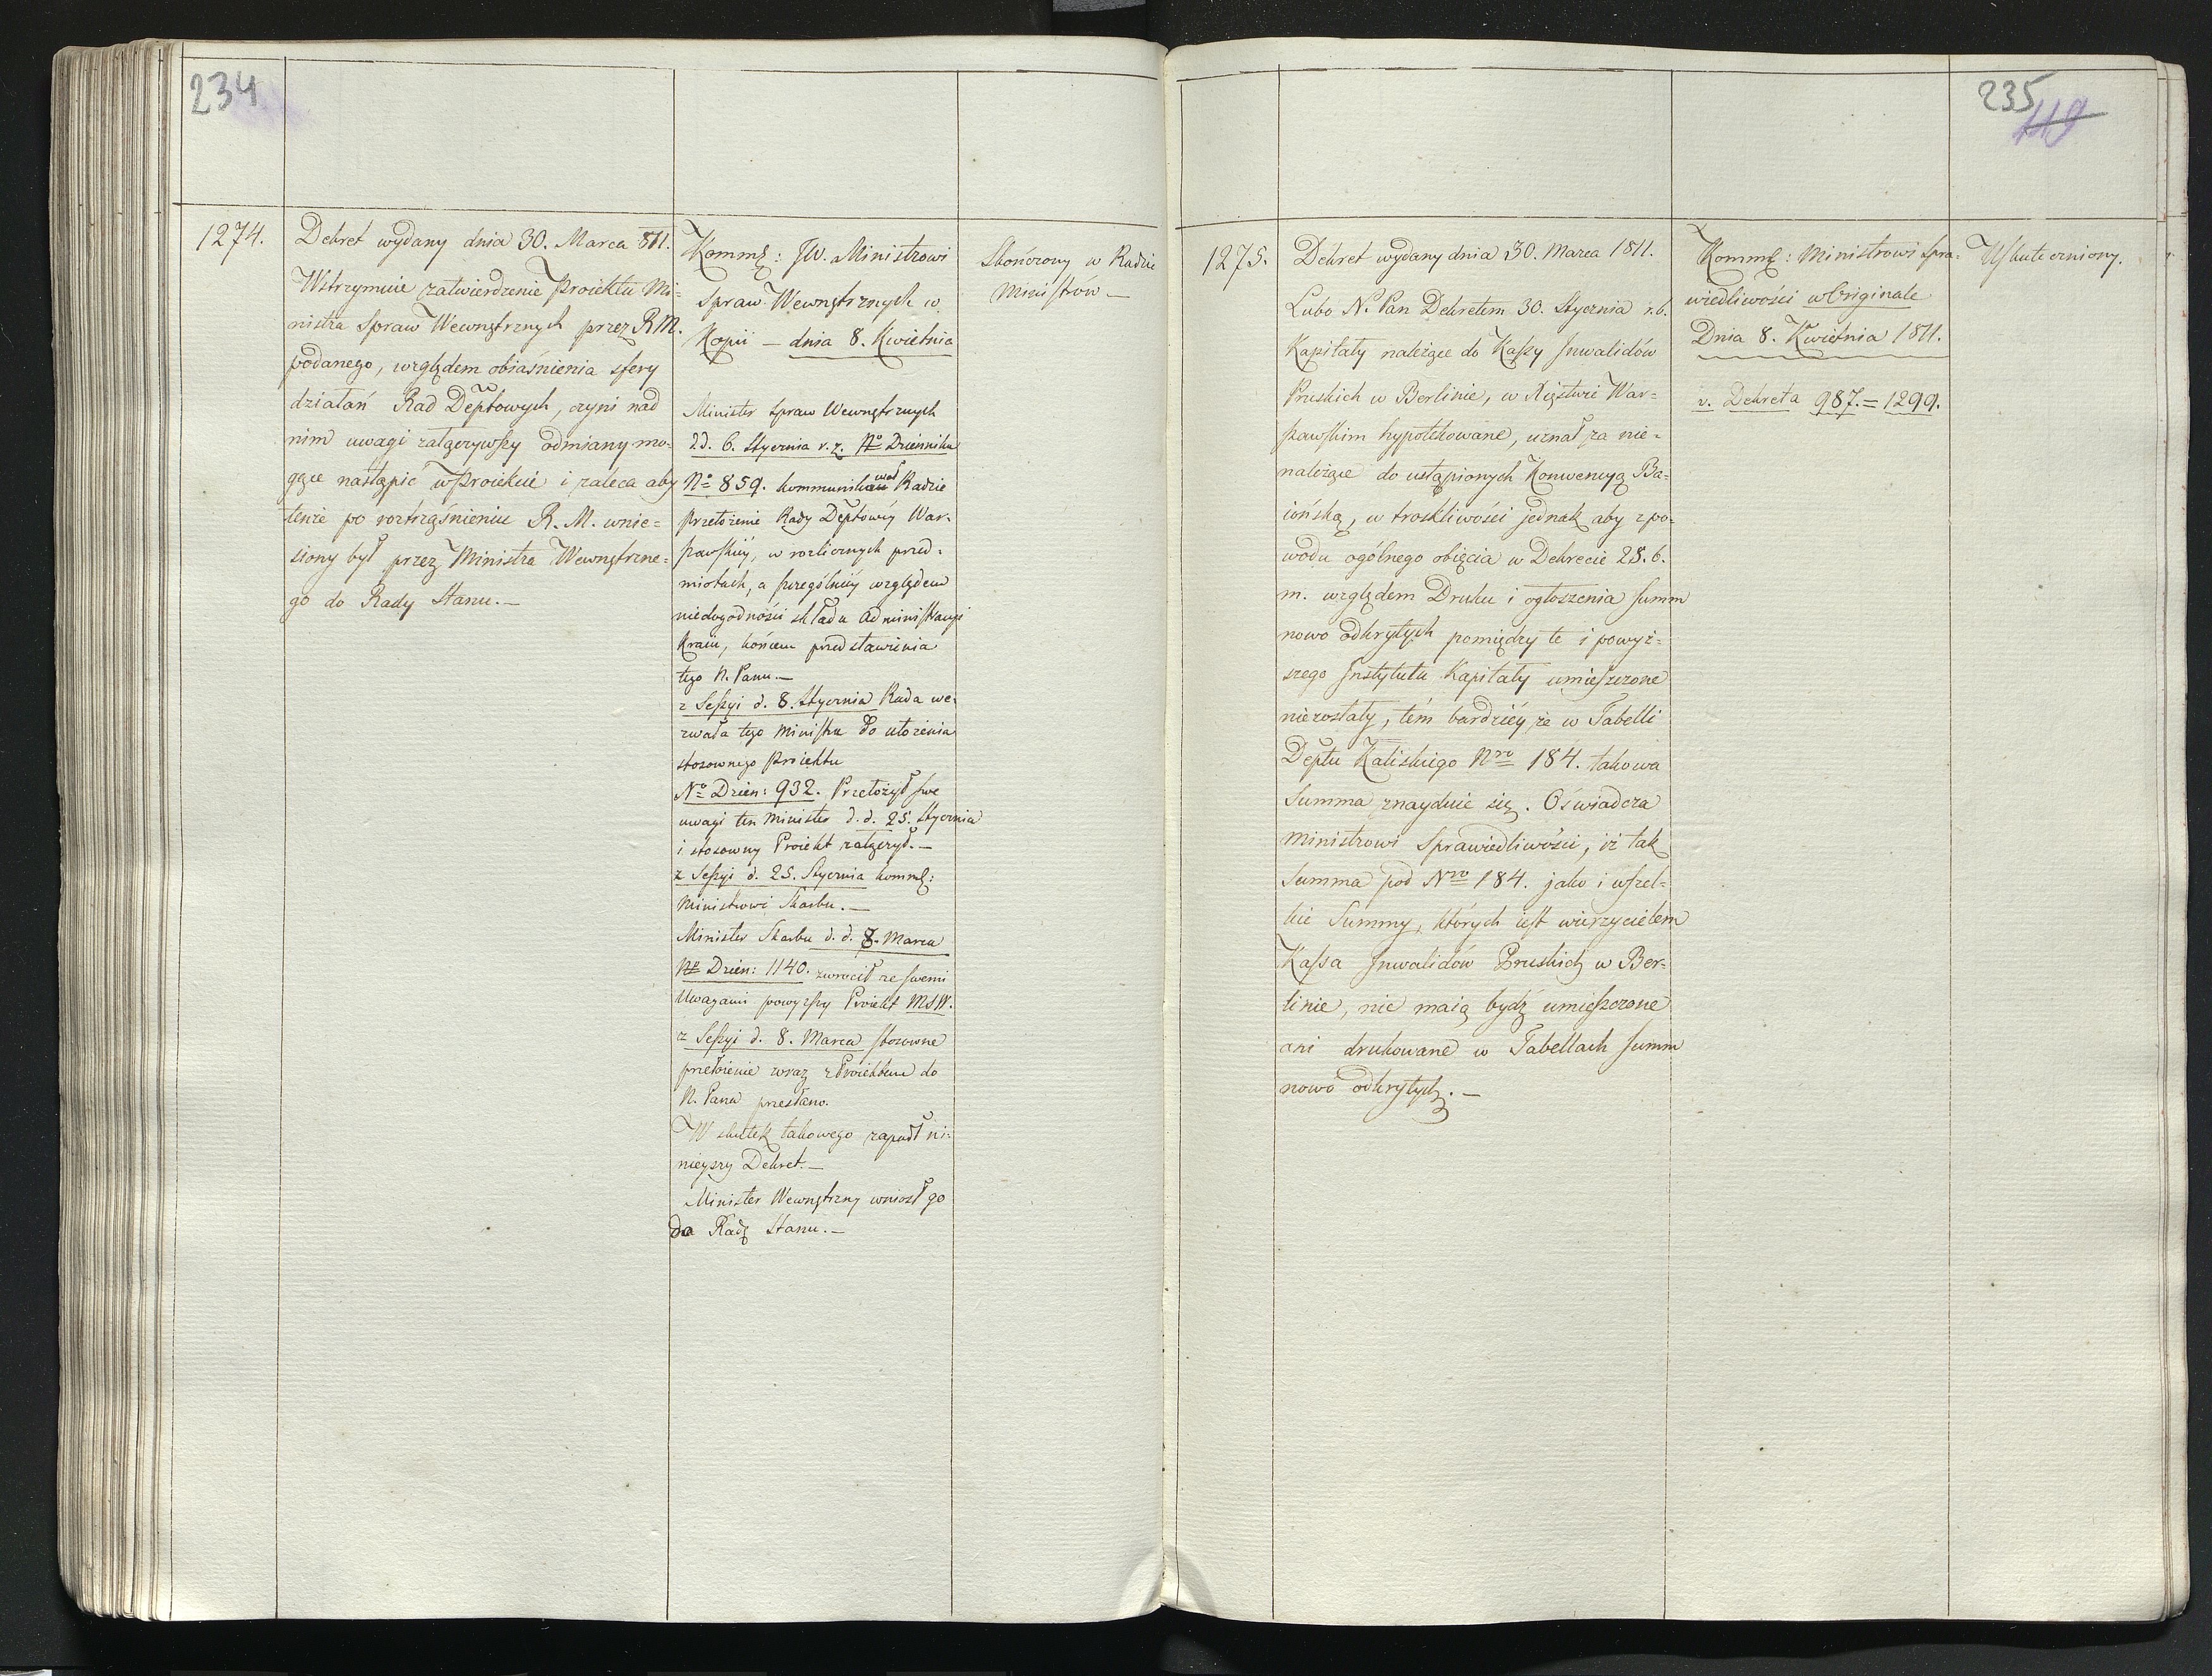 234
1274.
Dekret wydany dnia 30. Marca 811.
Wstrzymuie zatwierdzenie Proiektu Mi=
nistra Spraw Wewnętrznych przez R.M.
podanego, względem obiaśnienia sfery
działań Rad Deptowych, czyni nad
nim uwagi załączywszy odmiany mo=
gące nastąpić w Proiekcie i zaleca aby
tenże po roztrząśnieniu R. M. wnie=
siony był przez Ministra Wewnętrzne=
go do Rady Stanu.—
Kommę: JW. Ministrowi
Spraw Wewnętrznych w
Kopii — dnia 8. Kwietnia
Minister Spraw Wewnętrznych
2d. 6. Stycznia r. z. No Dziennika
No 859. kommunikował Radzie
przełożenie Rady Deptowéy War=
szawskiéy, w rozlicznych przed=
miotach, a szczególniéy względem
niedogodności składu Administracyi
Kraiu, końcem przedstawienia
tego N. Panu.—
z Sessyi d. 8. Stycznia Rada we=
zwała tego Ministra do ułożenia
stosownego Proiektu
No Dzien: 932. Przełożył swe
uwagi ten Minister d. d. 25. Stycznia
i stosowny Proiekt załączył.—
z Sessyi d. 25. Stycznia kommę:
Ministrowi Skarbu.—
Minister Skarbu d. d. 8. Marca
No Dzien: 1140. zwrócił ze swemi
Uwagami powyższy Proiekt MSW.
z Sessyi d. 8. Marca stosowne
przełożenie wraz z Proiektem do
N. Pana przesłano.
W skutek takowego zapadł ni=
nieyszy Dekret.—
Minister Wewnętrzny wniosł go
do Radę Stanu.—
Skończony w Radzie
Ministrów —
235
119
1275.
Dekret wydany dnia 30. Marca 1811.
Lubo N. Pan Dekretem 30. Stycznia r. b.
Kapitały należące do Kassy Inwalidów
Pruskich w Berlinie, w Xięstwie War=
szawskim hypotekowane, uznał za nie=
należące do ustąpionych Konwencyą Ba=
iońską, w troskliwości jednak aby z po=
wodu ogólnego obięcia w Dekrecie 28. b.
m. względem Druku i ogłoszenia summ
nowo odkrytych pomiędzy te i powyż=
szego Instytutu Kapitały umieszczone
niezostały, tém bardziéy, że w Tabelli
Deptu Kaliskiego Nro 184. takowa
Summa znayduie się. Oświadcza
Ministrowi Sprawiedliwości, iż tak
Summa pod Nro 184. jako i wszel=
kie Summy, których iest wierzycielem
Kassa Inwalidów Pruskich w Ber=
linie, nie maią bydź umieszczone
ani drukowane w Tabellach summ
nowo odkrytych.—
Kommę: Ministrowi Spra=
wiedliwości w Originale
Dnia 8. Kwietnia 1811.
v. Dekreta 987. = 1299.
Uskuteczniony.